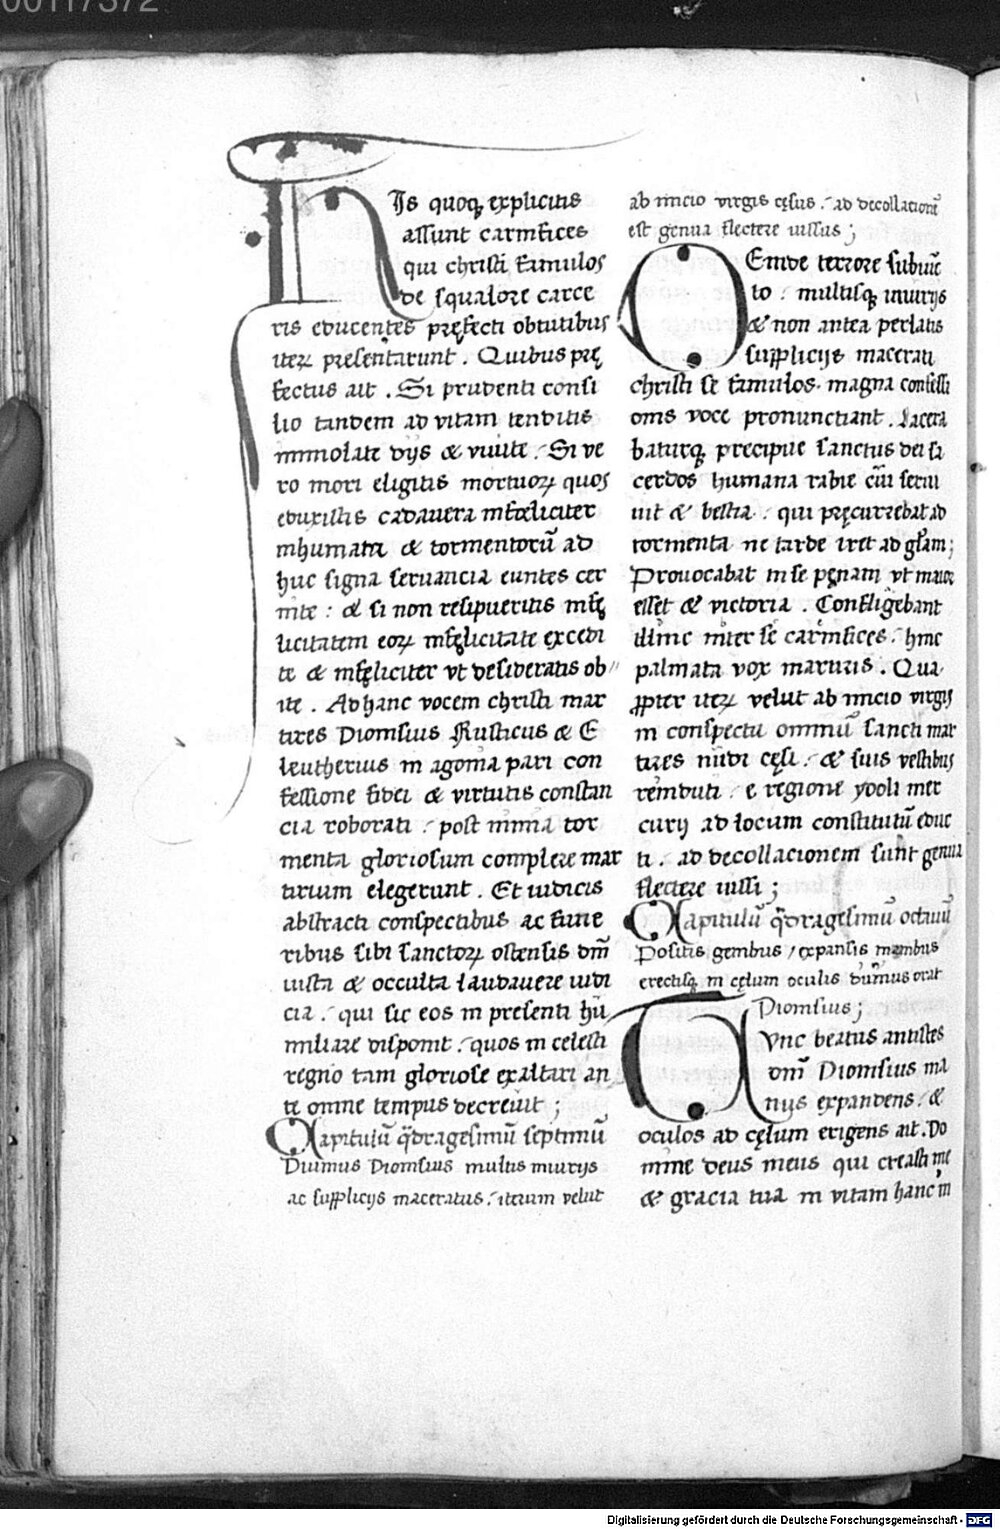 00117372
His quoq; explicitis
assunt carnifices
qui christi famulos
de squalore carce
ris educentes pręfecti obtutibus
iterꝝ presentarunt . Quibus prę
fectus ait . Si prudenti consi
lio tandem ad vitam tenditis
immolate dijs & viuite : Si ve
ro mori eligitis mortuoꝝ quos
eduxistis cadauera infęliciter
inhumata & tormentorū ad
huc signa seruancia euntes cer
nite : & si non resipueritis infę
licitatem eoꝝ infęlicitate excedi
te & infęliciter vt desideratis ob〃
ite . Ad hanc vocem christi mar
tires Dionisius Rusticus & E
leutherius in agonia pari con
fessione fidei & virtutis constan
cia roborati : post nimia tor
menta gloriosum complere mar
tirium elegerunt . Et iudicis
abstracti conspectibus ac fune
ribus sibi sanctoꝝ ostensis dn̄i
iusta & occulta laudauere iudi
cia : qui sic eos in presenti hū
miliare disponit : quos in celesti
regno tam gloriose exaltari an
te omne tempus decreuit ;
Capitulū q̄dragesimū septimū
Diuinus Dionisius multis iniurijs
ac supplicijs maceratus : iterum velut
ab inicio virgis cęsus : ad decollacionē
est genua flectere iussus ;
Deinde terrore subiūc
to : multisq; iniurijs
& non antea perlatis
supplicijs macerati
christi se famulos magna confessi
onis voce pronunctiant . Lacera
baturq; precipue sanctus dei sa
cerdos humana rabie cūi serui
uit & bestia : qui pręcurrebat ad
tormenta ne tarde iret ad gl̄am ;
Prouocabat in se pęnam vt maior
esset & victoria . Confligebant
illinc inter se carnifices : hinc
palmata vox martiris . Qua
ꝓpter iterꝝ velut ab inicio virgis
in conspectu omniū sancti mar
tires nudi cęsi : & suis vestibus
reinduti : e regione ydoli mer
curij ad locum constitutū educ
ti : ad decollacionem sunt genua
flectere iussi ;
Capitulū q̄dragesimū octauū
Positis genibus / expansis manibus
erectisq; in cęlum oculis diuinus orat
Dionisius ;
Tunc beatus antistes
dn̄i Dionisius ma
nus expandens : &
oculos ad cęlum erigens ait . Do
mine deus meus qui creasti me
& gracia tua in vitam hanc in
Digitalisierung gefördert durch die Deutsche Forschungsgemeinschaft - DFG